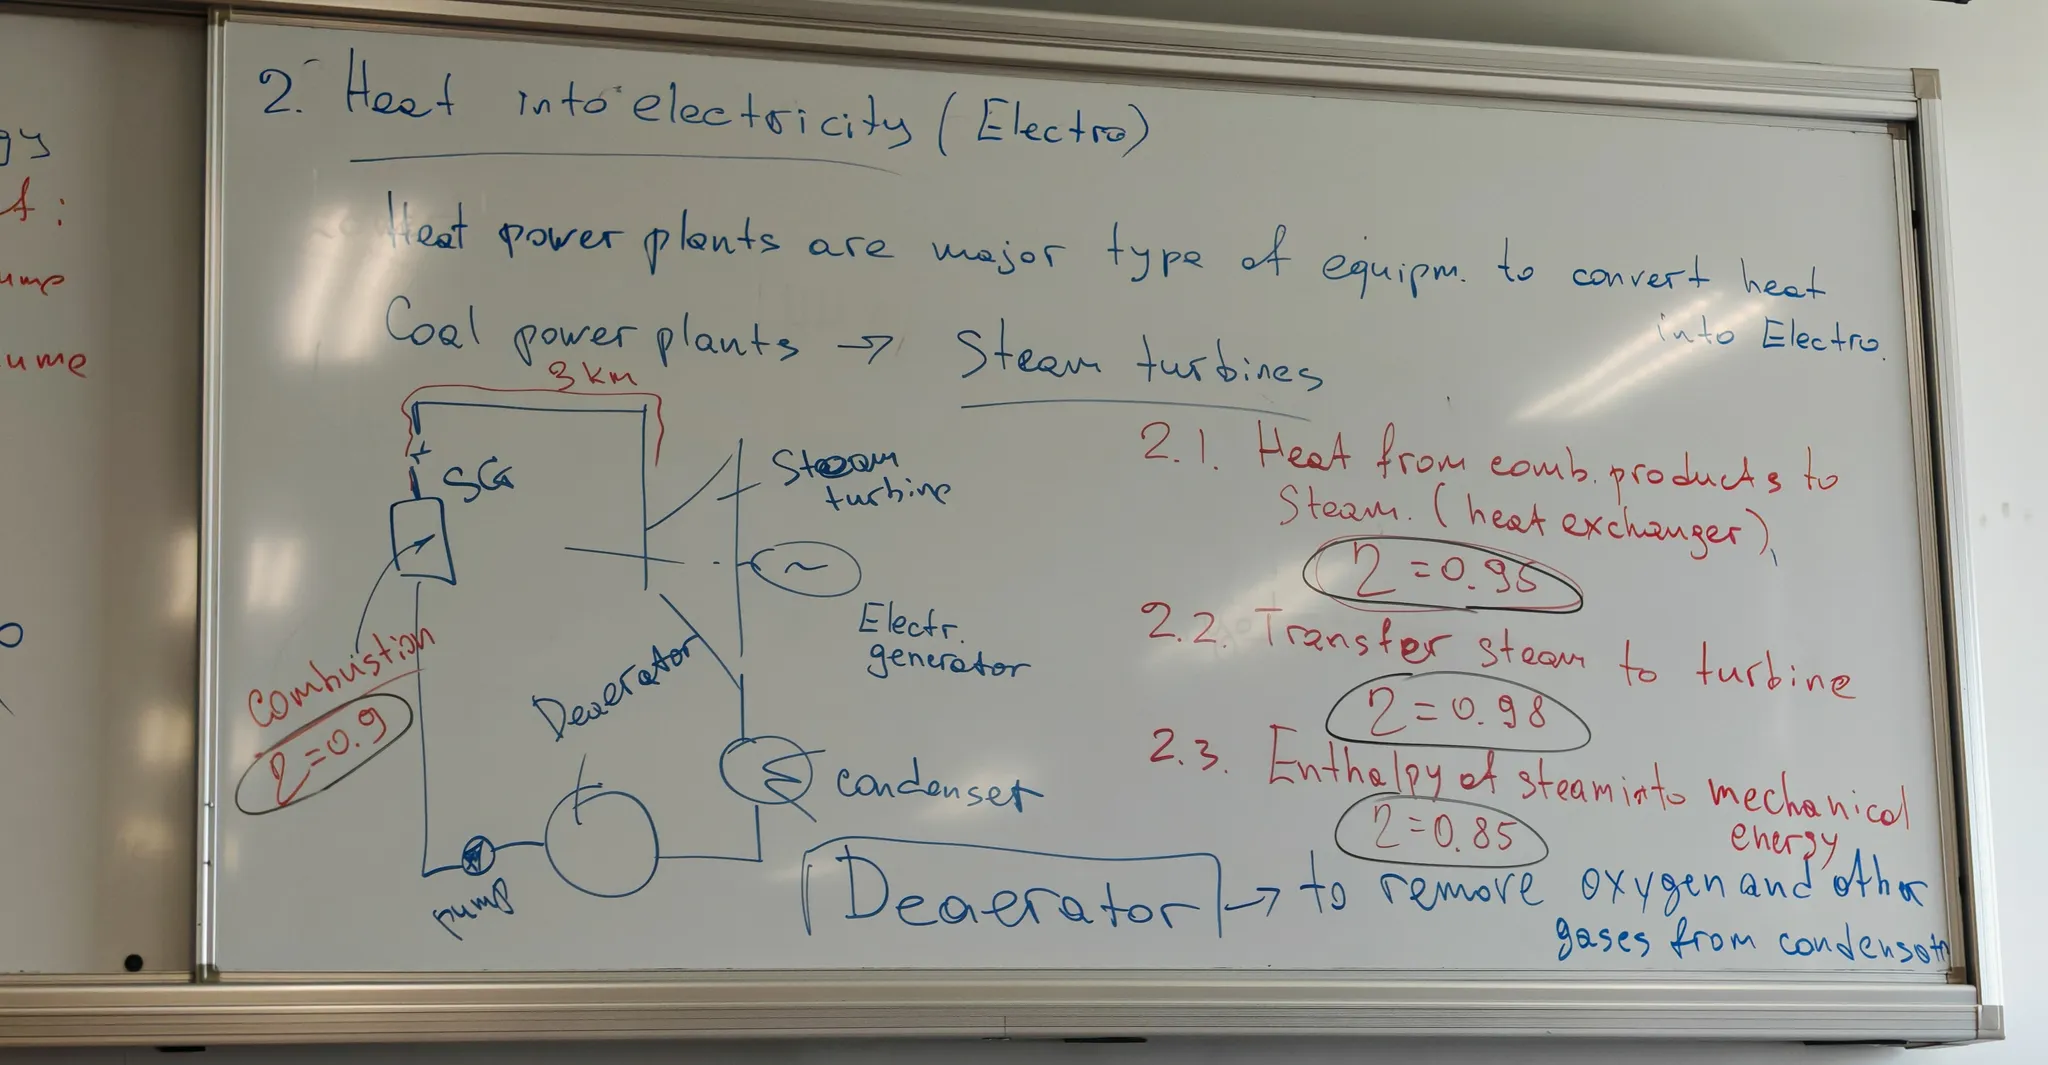 2. Heat into electricity (Electro)
Heat power plants are major type of equipm. to convert heat
into Electro.
Coal power plants → Steam turbines
3 km
SG
Steam
turbine
~
Electr.
generator
Combuistion
η=0.9
Deaerator
condenser
pump
2.1. Heat from comb. products to
Steam. (heat exchanger)
η=0.95
2.2. Transfer steam to turbine
η=0.98
2.3. Enthalpy of steam into mechanical
energy
η=0.85
Deaerator → to remove oxygen and other
gases from